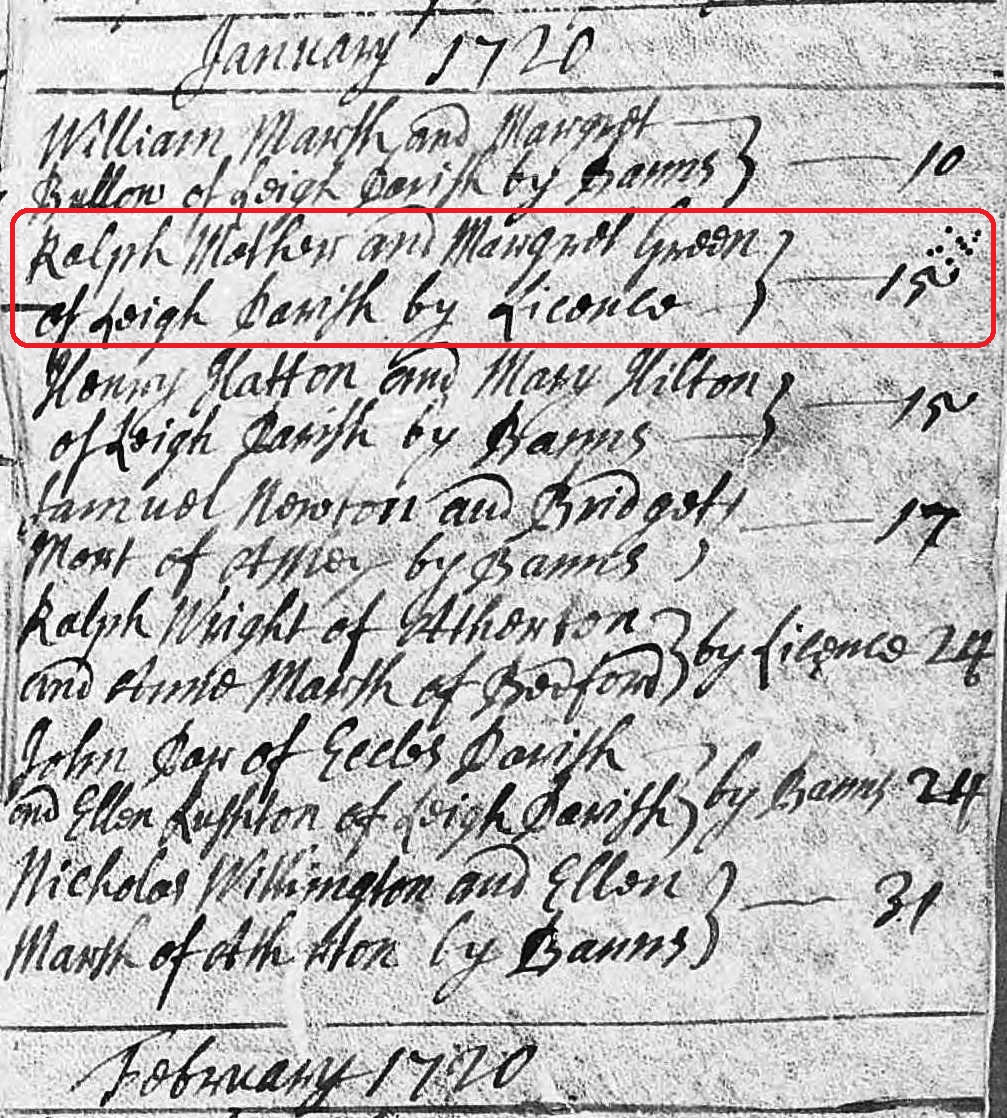 January 1720
William Marsh and Margret
Bullow of Leigh Parish by Banns 10
Ralph Mather and Margret Green
of Leigh Parish by Licence 15
Henry Hatton and Mary Hilton
of Leigh Parish by Banns 15
Samuel Newton and Bridget
Mort of by Banns 17
Ralph Wright of Atherton
and Anne Marsh of Bedford by Licence 24
John Par of Eccles Parish
and Ellen of Leigh Parish by Banns 24
Nicholas Withington and Ellen
Marsh of by Banns 31
February 1720